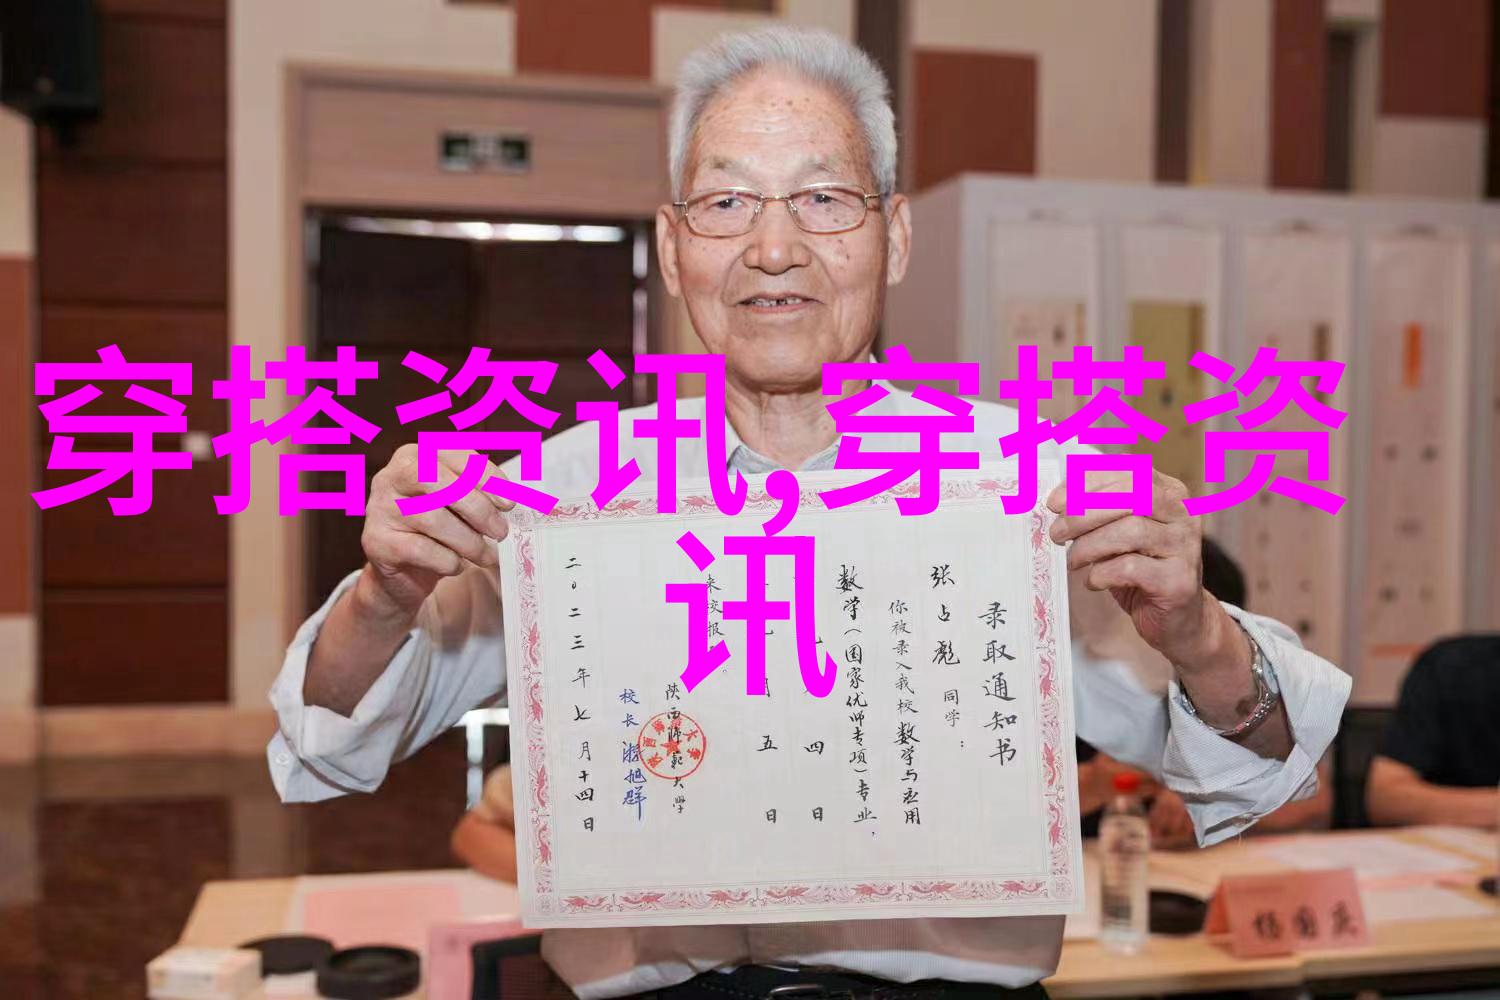 穿搭资讯,穿搭资
讯
录取通知书
张占彪 同学：
你被录入我校数学与应用
数学（国家优师专项）专业，
四日
五日
来校报
陕西师范大学
校长 游旭群
二〇二三年七月十四日
杨国庆